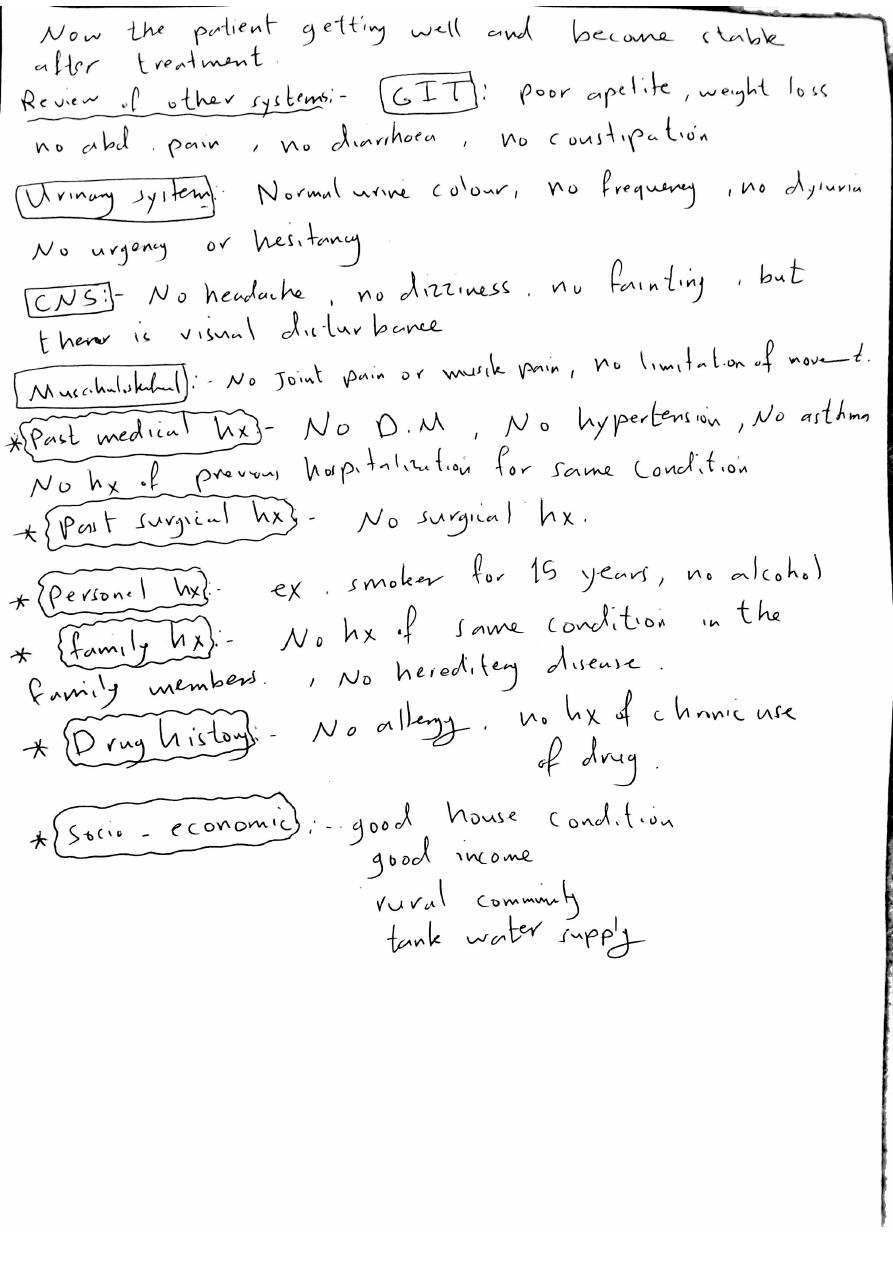 Now the patient getting well and become stable
after treatment.
Review of other systems:- GIT: poor apetite, weight loss
no abd. pain, no diarrhoea, no constipation
Urinary system: Normal urine colour, no frequency, no dysuria
No urgency or hesitancy
CNS:- No headache, no dizziness. no fainting, but
there is visual disturbance
:- No Joint pain or muscle pain, no limitation of
* Past medical hx:- No D.M, No hypertension, No asthma
No hx of previous hospitalization for same condition
* Past surgical hx:- No surgical hx.
* Personal hx:- ex. smoker for 15 years, no alcohol
* family hx:- No hx of same condition in the
family members., No hereditery disease.
* Drug history:- No allergy. no hx of chronic use
of drug.
* Socio-economic:- good house condition
good income
rural community
tank water supply